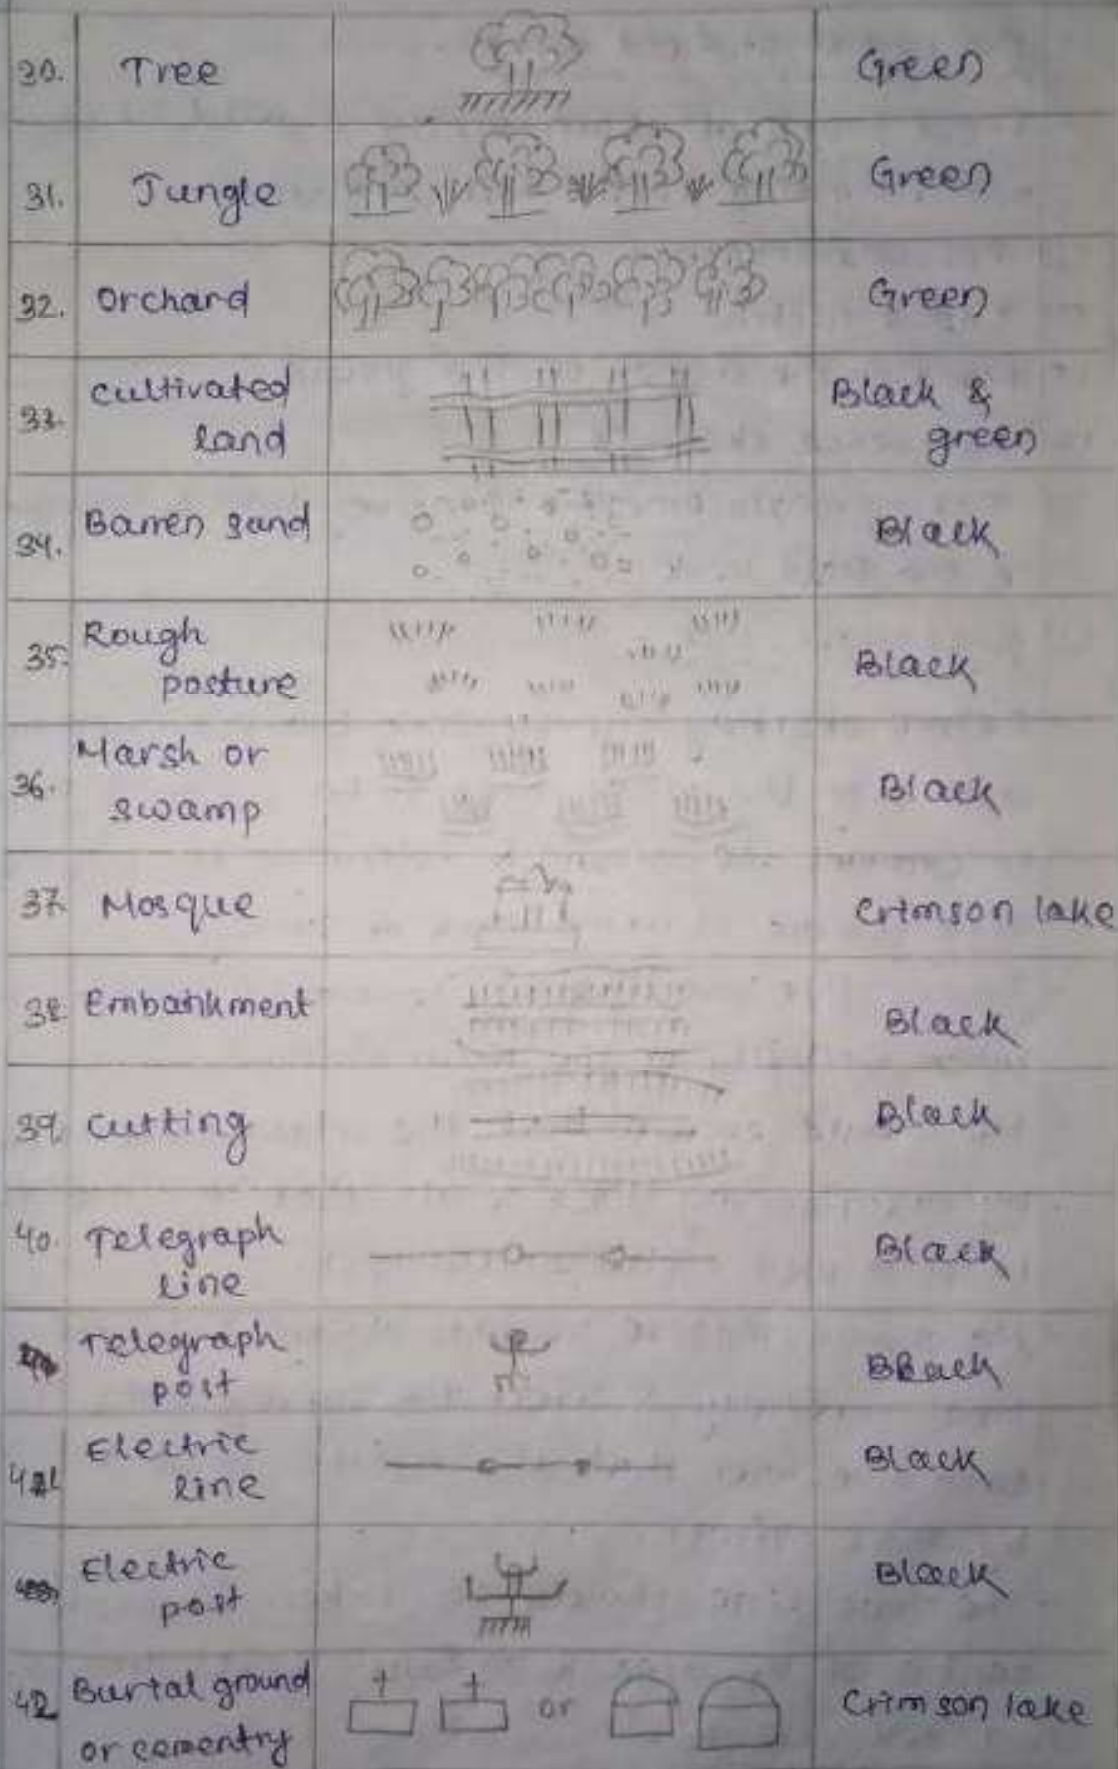 30. Tree Green
31. Jungle Green
32. Orchard Green
33. Cultivated Black &
land green
34. Barren sand Black
35. Rough
posture Black
36. Marsh or
swamp Black
37. Mosque Crimson lake
38. Embankment Black
39. Cutting Black
40. Telegraph Black
line
Telegraph
post BBack
Electric Black
line
Electric Black
post
42 Burtal ground or Crimson lake
or cementry